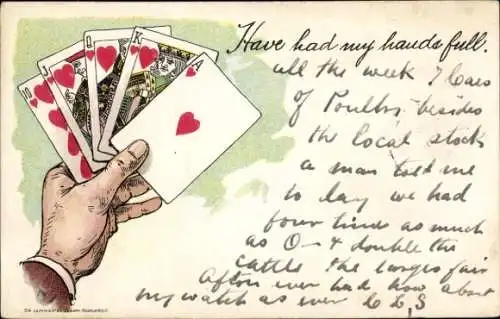 10
J
Q
K
A
Have had my hands full.
all the week 7 Cars
of Poultry besides
the local stock
a man told me
to day we had
four times as much
as O— & double the
cattle the larges fair
ever had how about
my watch as ever